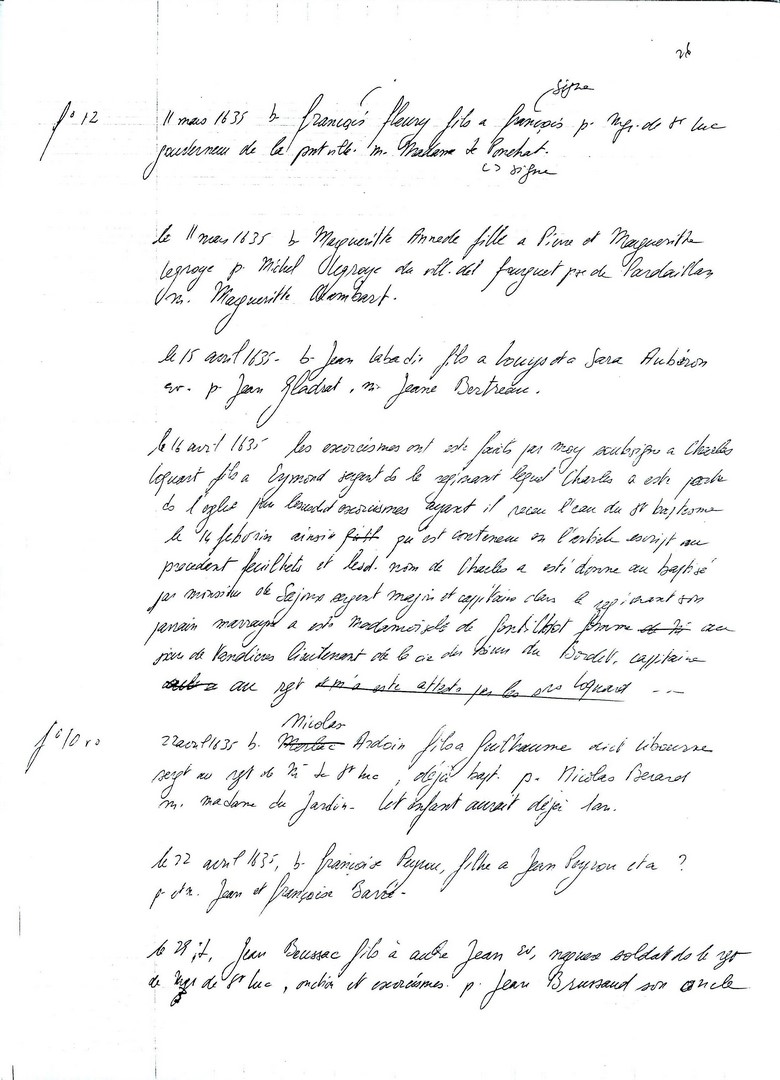 26
signe
f° 12 11 mars 1635 b. françois fleury fils a françois p. Mgr. de St luc
gouverneur de la pnt ville. m. Madame de Ponchat.
signe
le 11 mars 1635 b Margueritte Annede fille a Pierre et Margueritte
Legroye p. Michel Legroye du vill. dit fouguet pse de Pardaillan
m. Margueritte Chambart.
le 15 avril 1635 - b. Jean Labadie fils a Louys et a Sara Aubéron
p. Jean Gladrat, m. Jeane Bertreau.
le 16 avril 1635 les exorcismes ont este faits par moy soubsigne a Charles
loquart fils a Eymond sergent ds le regimant lequel Charles a este porte
ds l'eglise pour lesusdit exorcismes ayant il receu l'eau du St baptesme
le 14 feborier ainsin fait qu'est contenu en l'article escript au
precedent feuilhets et led. nom de Charles a esté donne au baptisé
par monsieur de Sajeux sergent major et cappitaine dans le regiment son
parrain marrayne a este Madamoiselle de femme au
sieur de Vandieres lieutenant de la cie des du Bordet, cappitaine
au rgt m'a este atteste par les srs loquard - - -
Nicolas
f° 10 ro 22 avril 1635 b. Ardoin fils a Guilhaume dict libourne
sergt au rgt de Mr de St luc, déjà bapt. p. Nicolas Berard
m. madame du Jardin - Cet enfant aurait déjà 1 an.
le 22 avril 1635, b. françoise Peyrou, filhe a Jean Peyrou et a ?
p et m. Jean et françoise Barré -
le 29 , Jean Boussac fils à autre Jean soldat ds le rgt
de Mgr de St luc, onction et exorcismes. p. Jean Brussaud son oncle